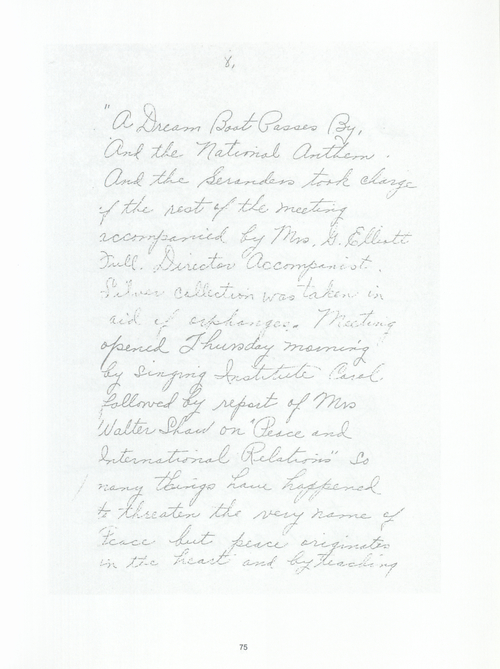 8,
"A Dream Boat Passes By,
And the National Anthem.
And the Seranders took charge
of the rest of the meeting
accompanied by Mrs. G. Elliott
Full. Director Accompanist.
Silver collection was taken in
aid of orphanges. Meeting
opened Thursday morning
by singing Institute Carol
followed by report of Mrs
Walter Shaw on "Peace and
International Relations" So
many things have happened
to threaten the very name of
Peace but peace originates
in the heart and by teaching
75